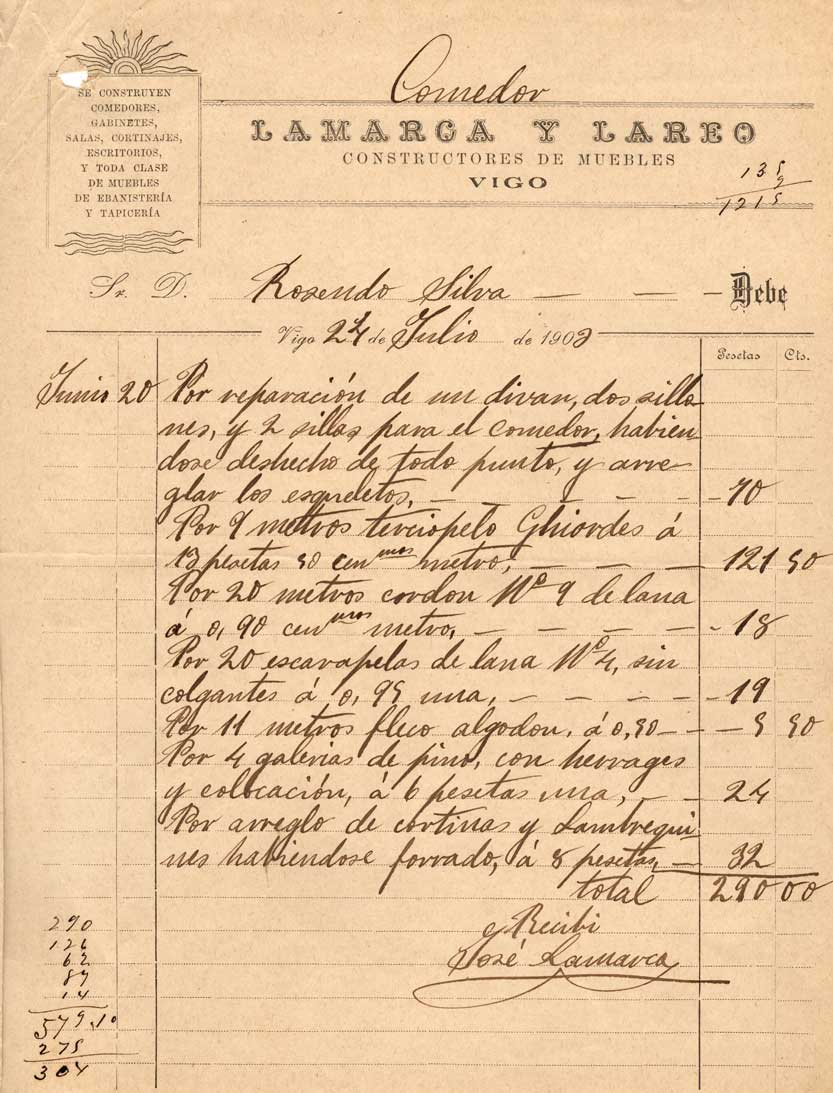 Comedor
SE CONSTRUYEN
COMEDORES,
GABINETES,
SALAS, CORTINAJES,
ESCRITORIOS,
Y TODA CLASE
DE MUEBLES
DE EBANISTERÍA
Y TAPICERÍA
LAMARCA Y LAREO
CONSTRUCTORES DE MUEBLES
VIGO
135
9
1215
Sr. D. Rosendo Silva — — — Debe
Vigo 24 de Julio de 1902
Pesetas Cts.
Junio 20 Por reparación de un divan, dos sillo-
nes, y 2 sillas para el comedor, habien
dose deshecho de todo punto, y arre-
glar los esqueletos, — — — — - 70
Por 9 metros terciopelo Ghiordes á
13 pesetas 50 cenmos metro, — — — - 121 50
Por 20 metros cordon Nº 9 de lana
á 0,90 cenmos metro, — — — — - 18
Por 20 escarapelas de lana Nº 4, sin
colgantes á 0,95 una, — — — — - 19
Por 11 metros fleco algodon, á 0,50 — — 5 50
Por 4 galerias de pino, con herrages
y colocación, á 6 pesetas una, — — 24
Por arreglo de cortinas y Lambrequi-
nes habiendose forrado, á 8 pesetas, — 32
total 290 00
Recibi
José Lamarca
290
126
62
87
14
579,10
275
304